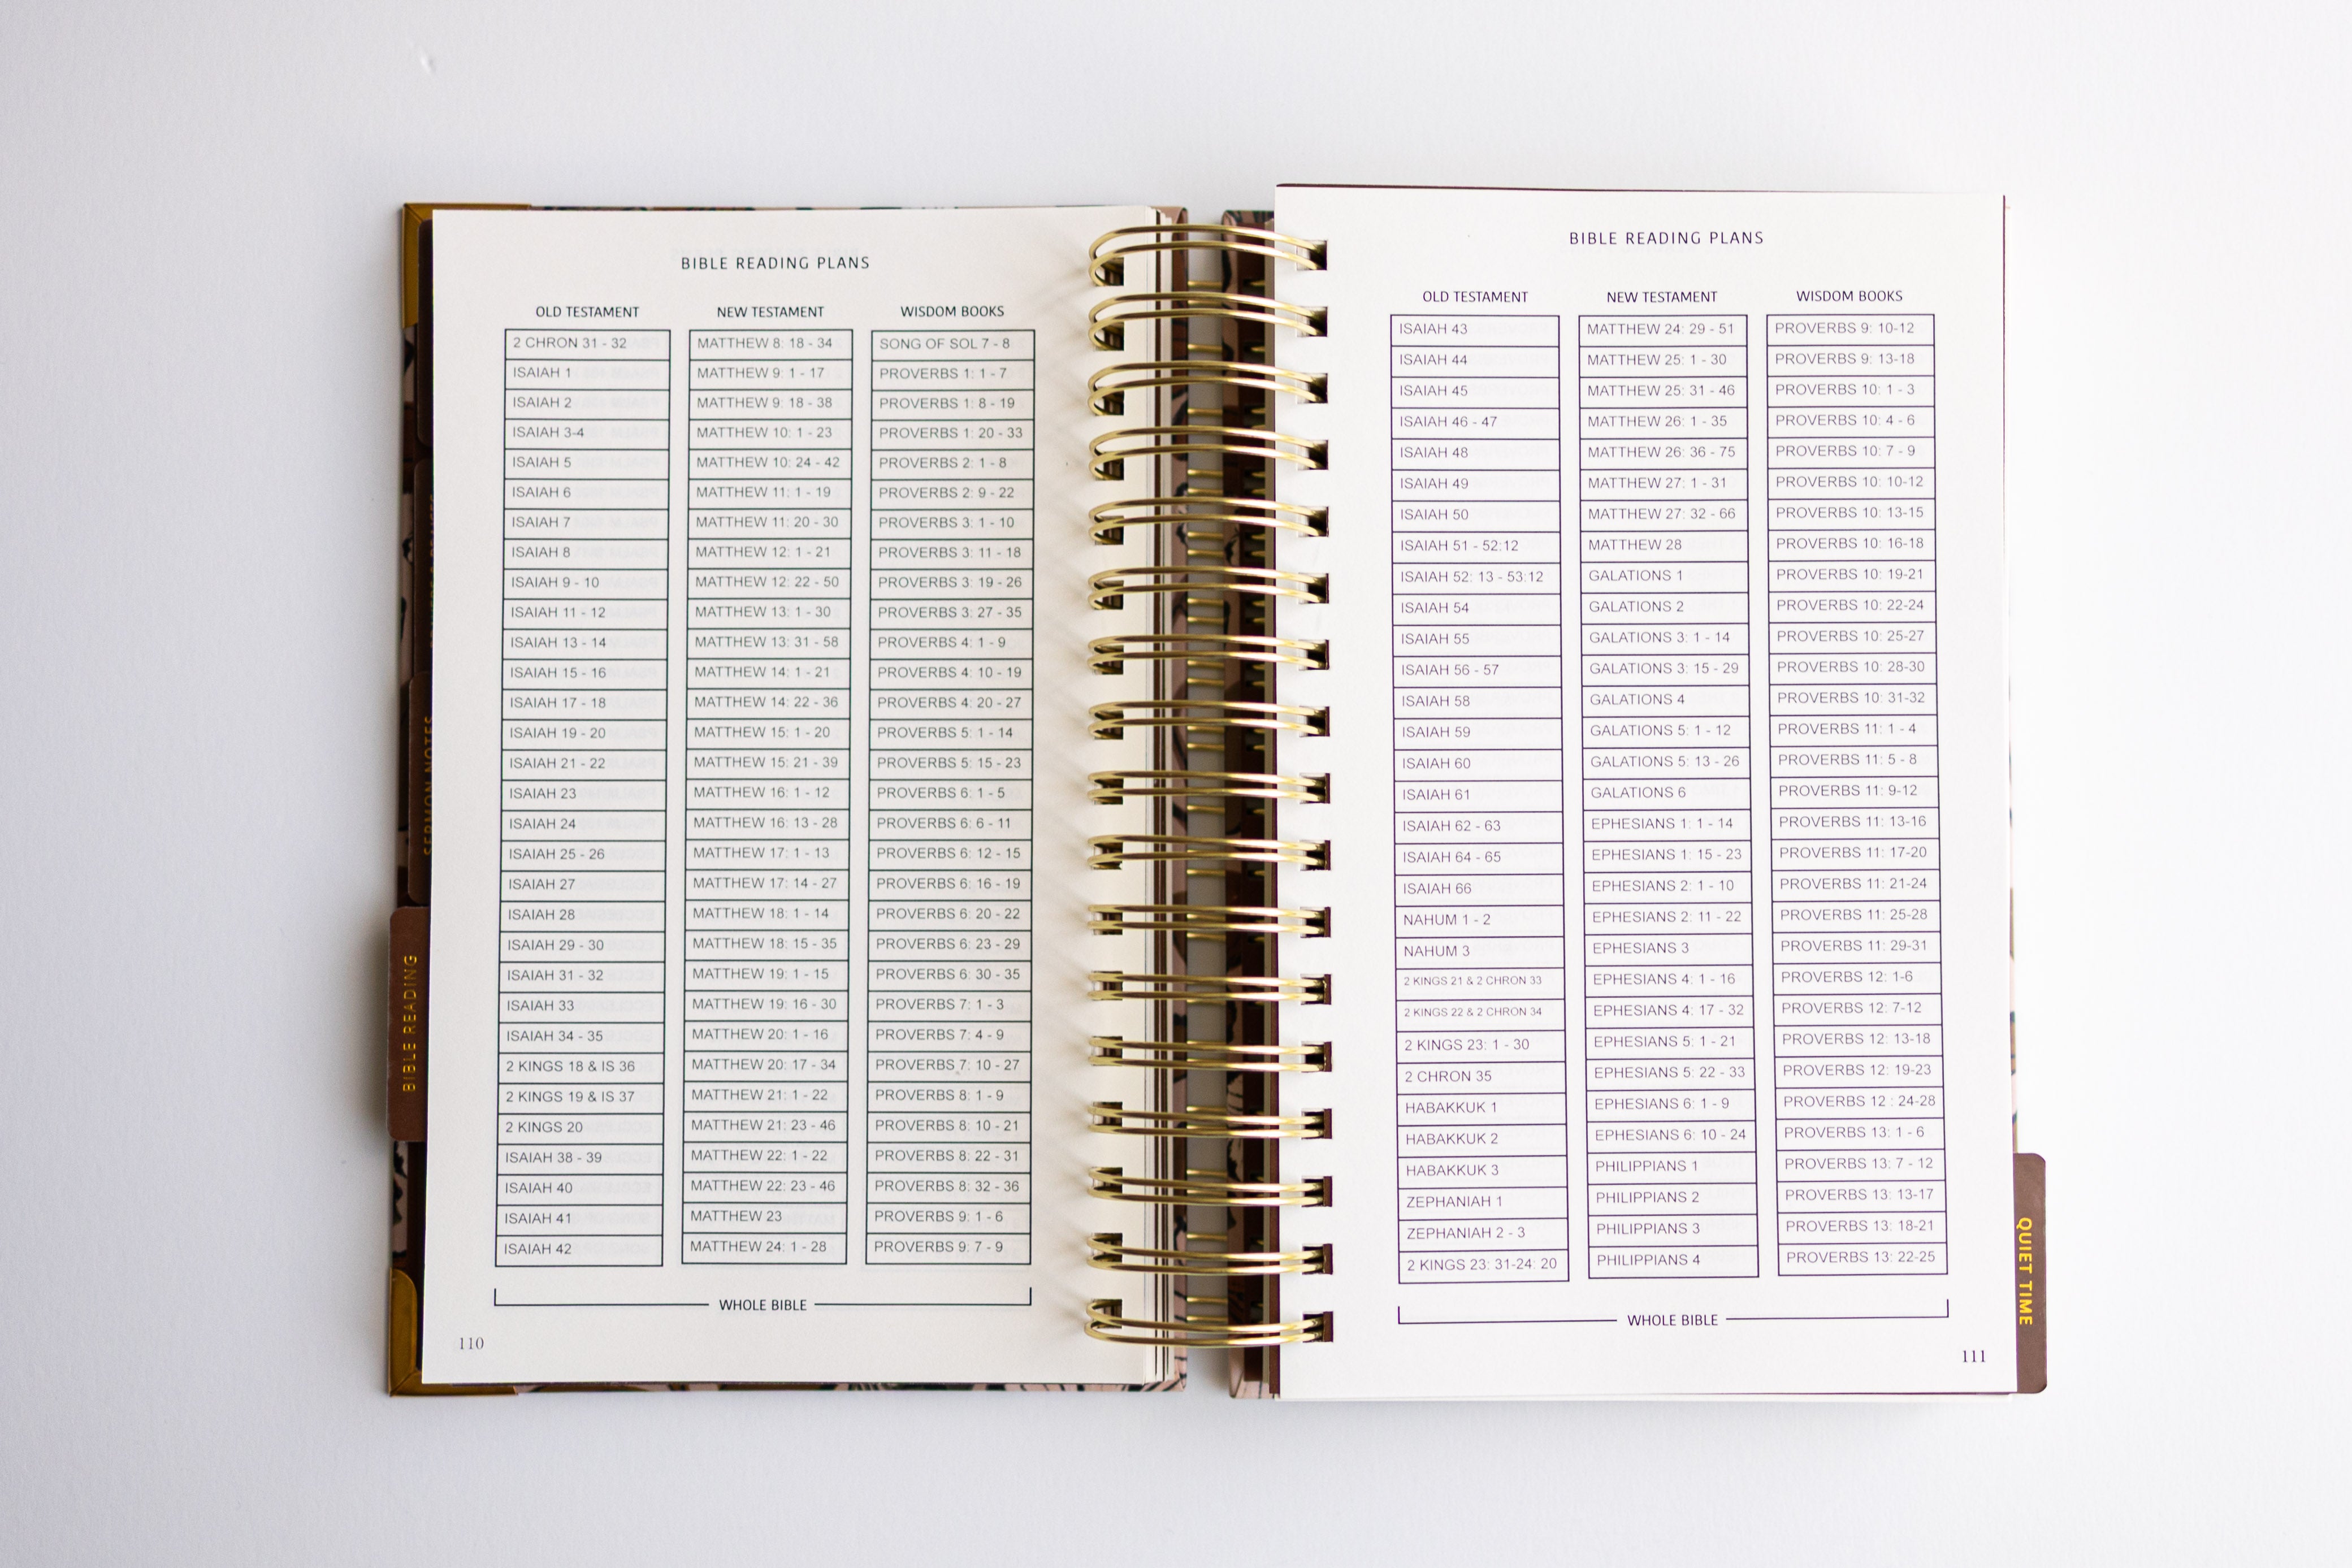 BIBLE READING PLANS
OLD TESTAMENT NEW TESTAMENT WISDOM BOOKS
2 CHRON 31 - 32 MATTHEW 8: 18 - 34 SONG OF SOL 7 - 8
ISAIAH 1 MATTHEW 9: 1 - 17 PROVERBS 1: 1 - 7
ISAIAH 2 MATTHEW 9: 18 - 38 PROVERBS 1: 8 - 19
ISAIAH 3-4 MATTHEW 10: 1 - 23 PROVERBS 1: 20 - 33
ISAIAH 5 MATTHEW 10: 24 - 42 PROVERBS 2: 1 - 8
ISAIAH 6 MATTHEW 11: 1 - 19 PROVERBS 2: 9 - 22
ISAIAH 7 MATTHEW 11: 20 - 30 PROVERBS 3: 1 - 10
ISAIAH 8 MATTHEW 12: 1 - 21 PROVERBS 3: 11 - 18
ISAIAH 9 - 10 MATTHEW 12: 22 - 50 PROVERBS 3: 19 - 26
ISAIAH 11 - 12 MATTHEW 13: 1 - 30 PROVERBS 3: 27 - 35
ISAIAH 13 - 14 MATTHEW 13: 31 - 58 PROVERBS 4: 1 - 9
ISAIAH 15 - 16 MATTHEW 14: 1 - 21 PROVERBS 4: 10 - 19
ISAIAH 17 - 18 MATTHEW 14: 22 - 36 PROVERBS 4: 20 - 27
ISAIAH 19 - 20 MATTHEW 15: 1 - 20 PROVERBS 5: 1 - 14
ISAIAH 21 - 22 MATTHEW 15: 21 - 39 PROVERBS 5: 15 - 23
ISAIAH 23 MATTHEW 16: 1 - 12 PROVERBS 6: 1 - 5
ISAIAH 24 MATTHEW 16: 13 - 28 PROVERBS 6: 6 - 11
ISAIAH 25 - 26 MATTHEW 17: 1 - 13 PROVERBS 6: 12 - 15
ISAIAH 27 MATTHEW 17: 14 - 27 PROVERBS 6: 16 - 19
ISAIAH 28 MATTHEW 18: 1 - 14 PROVERBS 6: 20 - 22
ISAIAH 29 - 30 MATTHEW 18: 15 - 35 PROVERBS 6: 23 - 29
ISAIAH 31 - 32 MATTHEW 19: 1 - 15 PROVERBS 6: 30 - 35
ISAIAH 33 MATTHEW 19: 16 - 30 PROVERBS 7: 1 - 3
ISAIAH 34 - 35 MATTHEW 20: 1 - 16 PROVERBS 7: 4 - 9
2 KINGS 18 & IS 36 MATTHEW 20: 17 - 34 PROVERBS 7: 10 - 27
2 KINGS 19 & IS 37 MATTHEW 21: 1 - 22 PROVERBS 8: 1 - 9
2 KINGS 20 MATTHEW 21: 23 - 46 PROVERBS 8: 10 - 21
ISAIAH 38 - 39 MATTHEW 22: 1 - 22 PROVERBS 8: 22 - 31
ISAIAH 40 MATTHEW 22: 23 - 46 PROVERBS 8: 32 - 36
ISAIAH 41 MATTHEW 23 PROVERBS 9: 1 - 6
ISAIAH 42 MATTHEW 24: 1 - 28 PROVERBS 9: 7 - 9
WHOLE BIBLE
110
SERMON NOTES
BIBLE READING
BIBLE READING PLANS
OLD TESTAMENT NEW TESTAMENT WISDOM BOOKS
ISAIAH 43 MATTHEW 24: 29 - 51 PROVERBS 9: 10-12
ISAIAH 44 MATTHEW 25: 1 - 30 PROVERBS 9: 13-18
ISAIAH 45 MATTHEW 25: 31 - 46 PROVERBS 10: 1 - 3
ISAIAH 46 - 47 MATTHEW 26: 1 - 35 PROVERBS 10: 4 - 6
ISAIAH 48 MATTHEW 26: 36 - 75 PROVERBS 10: 7 - 9
ISAIAH 49 MATTHEW 27: 1 - 31 PROVERBS 10: 10-12
ISAIAH 50 MATTHEW 27: 32 - 66 PROVERBS 10: 13-15
ISAIAH 51 - 52:12 MATTHEW 28 PROVERBS 10: 16-18
ISAIAH 52: 13 - 53:12 GALATIONS 1 PROVERBS 10: 19-21
ISAIAH 54 GALATIONS 2 PROVERBS 10: 22-24
ISAIAH 55 GALATIONS 3: 1 - 14 PROVERBS 10: 25-27
ISAIAH 56 - 57 GALATIONS 3: 15 - 29 PROVERBS 10: 28-30
ISAIAH 58 GALATIONS 4 PROVERBS 10: 31-32
ISAIAH 59 GALATIONS 5: 1 - 12 PROVERBS 11: 1 - 4
ISAIAH 60 GALATIONS 5: 13 - 26 PROVERBS 11: 5 - 8
ISAIAH 61 GALATIONS 6 PROVERBS 11: 9-12
ISAIAH 62 - 63 EPHESIANS 1: 1 - 14 PROVERBS 11: 13-16
ISAIAH 64 - 65 EPHESIANS 1: 15 - 23 PROVERBS 11: 17-20
ISAIAH 66 EPHESIANS 2: 1 - 10 PROVERBS 11: 21-24
NAHUM 1 - 2 EPHESIANS 2: 11 - 22 PROVERBS 11: 25-28
NAHUM 3 EPHESIANS 3 PROVERBS 11: 29-31
2 KINGS 21 & 2 CHRON 33 EPHESIANS 4: 1 - 16 PROVERBS 12: 1-6
2 KINGS 22 & 2 CHRON 34 EPHESIANS 4: 17 - 32 PROVERBS 12: 7-12
2 KINGS 23: 1 - 30 EPHESIANS 5: 1 - 21 PROVERBS 12: 13-18
2 CHRON 35 EPHESIANS 5: 22 - 33 PROVERBS 12: 19-23
HABAKKUK 1 EPHESIANS 6: 1 - 9 PROVERBS 12 : 24-28
HABAKKUK 2 EPHESIANS 6: 10 - 24 PROVERBS 13: 1 - 6
HABAKKUK 3 PHILIPPIANS 1 PROVERBS 13: 7 - 12
ZEPHANIAH 1 PHILIPPIANS 2 PROVERBS 13: 13-17
ZEPHANIAH 2 - 3 PHILIPPIANS 3 PROVERBS 13: 18-21
2 KINGS 23: 31-24: 20 PHILIPPIANS 4 PROVERBS 13: 22-25
WHOLE BIBLE
111
QUIET TIME